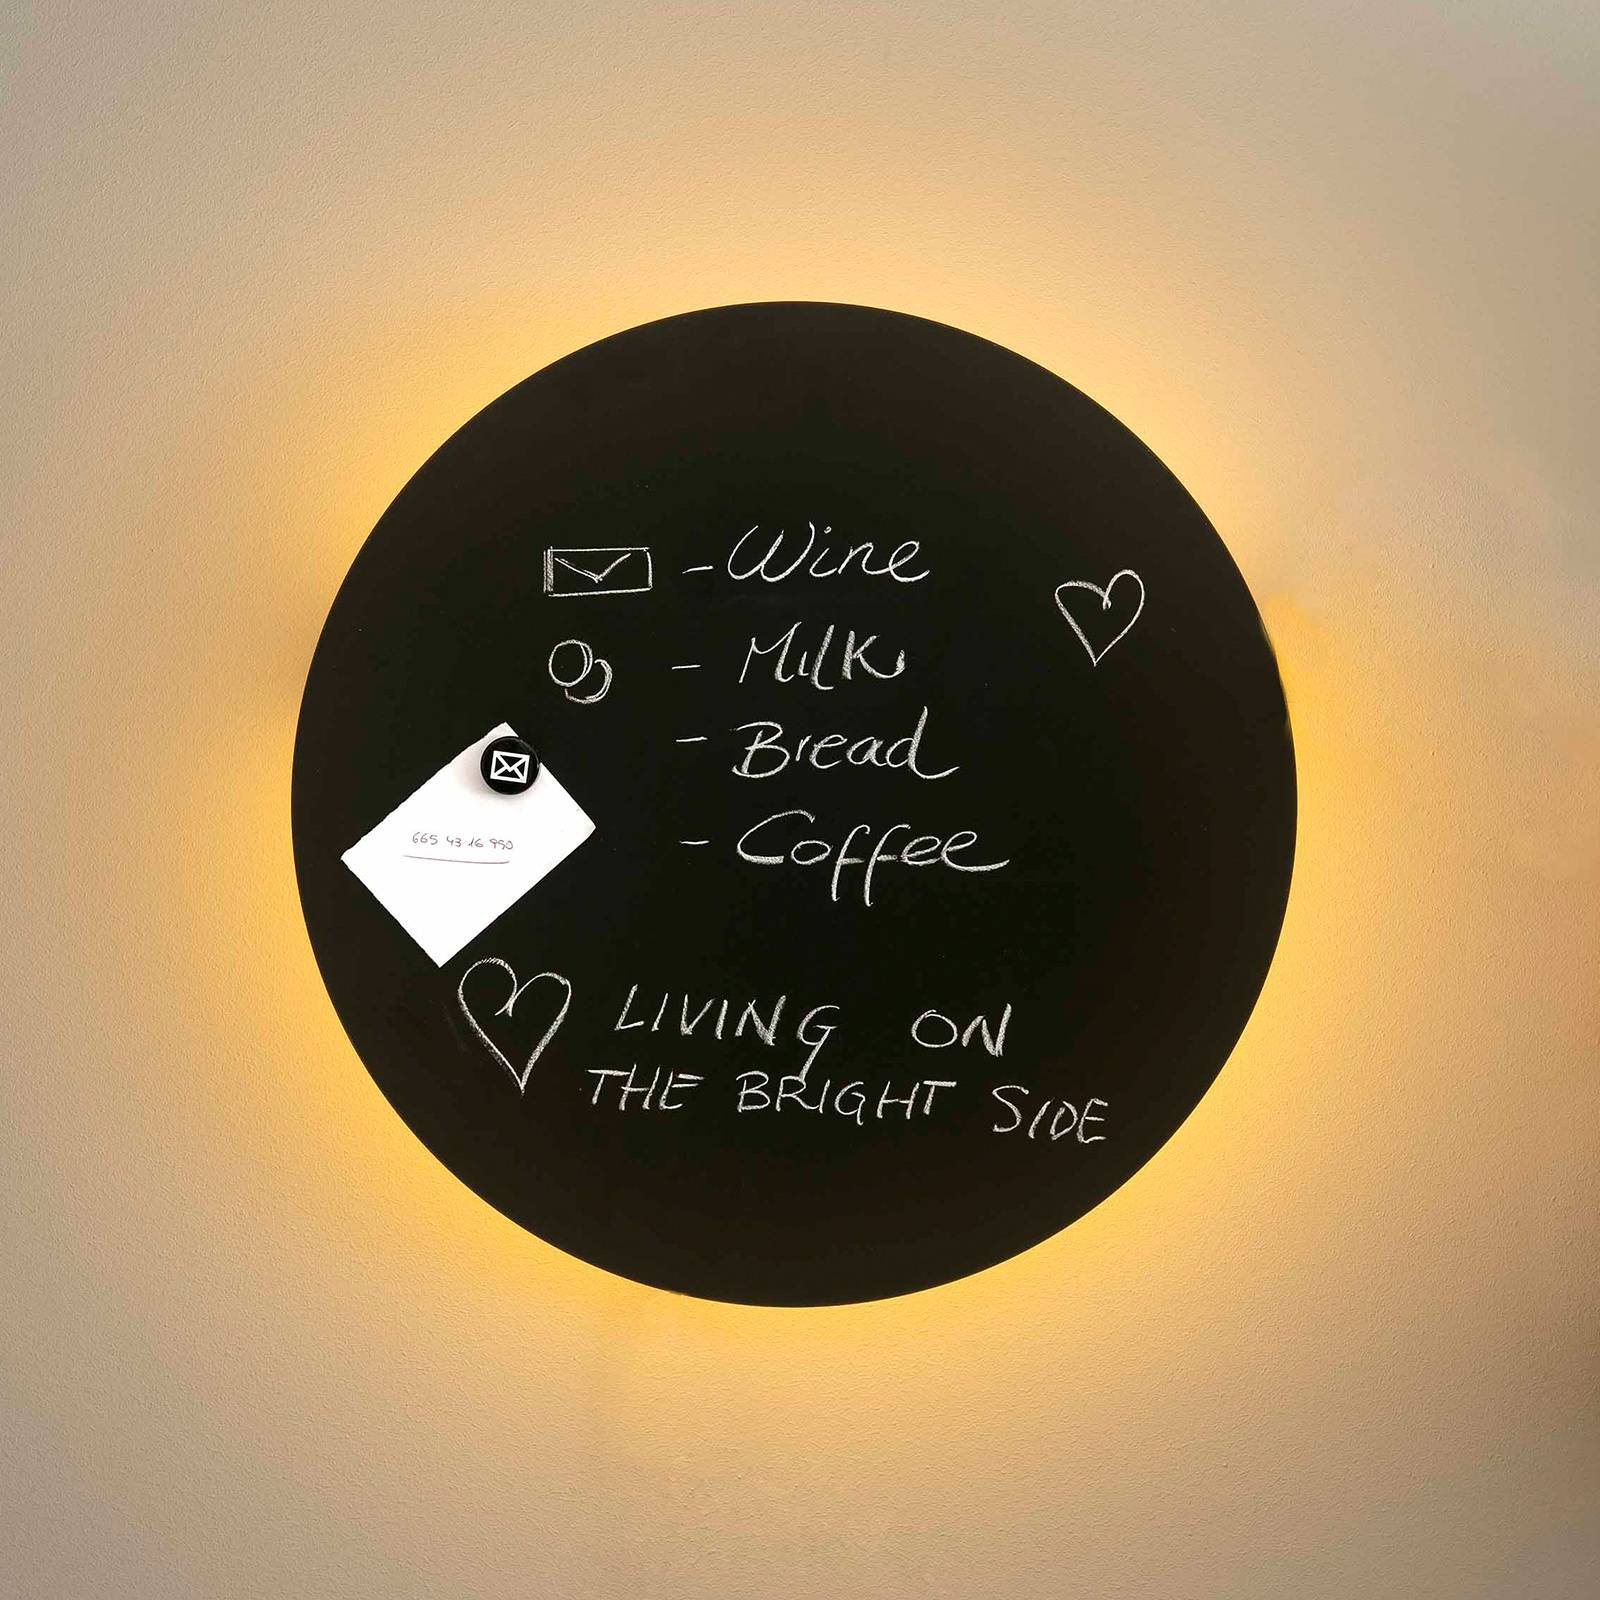 - Wine
- Milk
- Bread
- Coffee
665 43 16 950
LIVING ON
THE BRIGHT SIDE